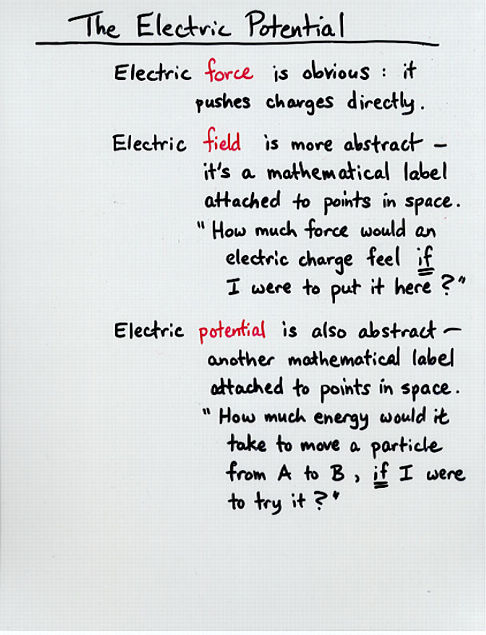 The Electric Potential
Electric force is obvious : it
pushes charges directly.
Electric field is more abstract —
it's a mathematical label
attached to points in space.
"How much force would an
electric charge feel if
I were to put it here?"
Electric potential is also abstract —
another mathematical label
attached to points in space.
"How much energy would it
take to move a particle
from A to B, if I were
to try it?"